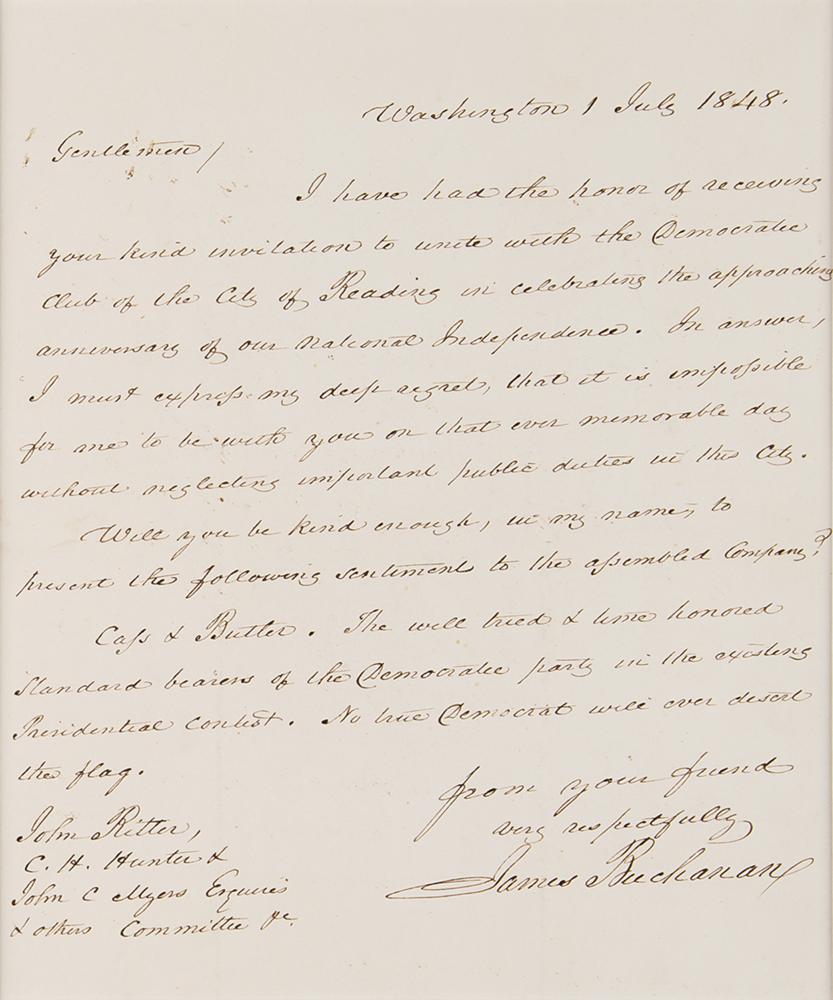 Washington 1 July 1848.
Gentlemen,
I have had the honor of receiving
your kind invitation to unite with the Democratic
Club of the City of Reading in celebrating the approaching
anniversary of our National Independence. In answer,
I must express my deep regret, that it is impossible
for me to be with you on that ever memorable day
without neglecting important public duties in this City.
Will you be kind enough, in my name, to
present the following sentiment to the assembled Company?
Cass & Butler. The well tried & time honored
standard bearers of the Democratic party in the existing
Presidential contest. No true Democrat will ever desert
the flag.
from your friend
very respectfully
James Buchanan
John Ritter,
C. H. Hunter &
John C Myers Esquires
& others Committee &c.